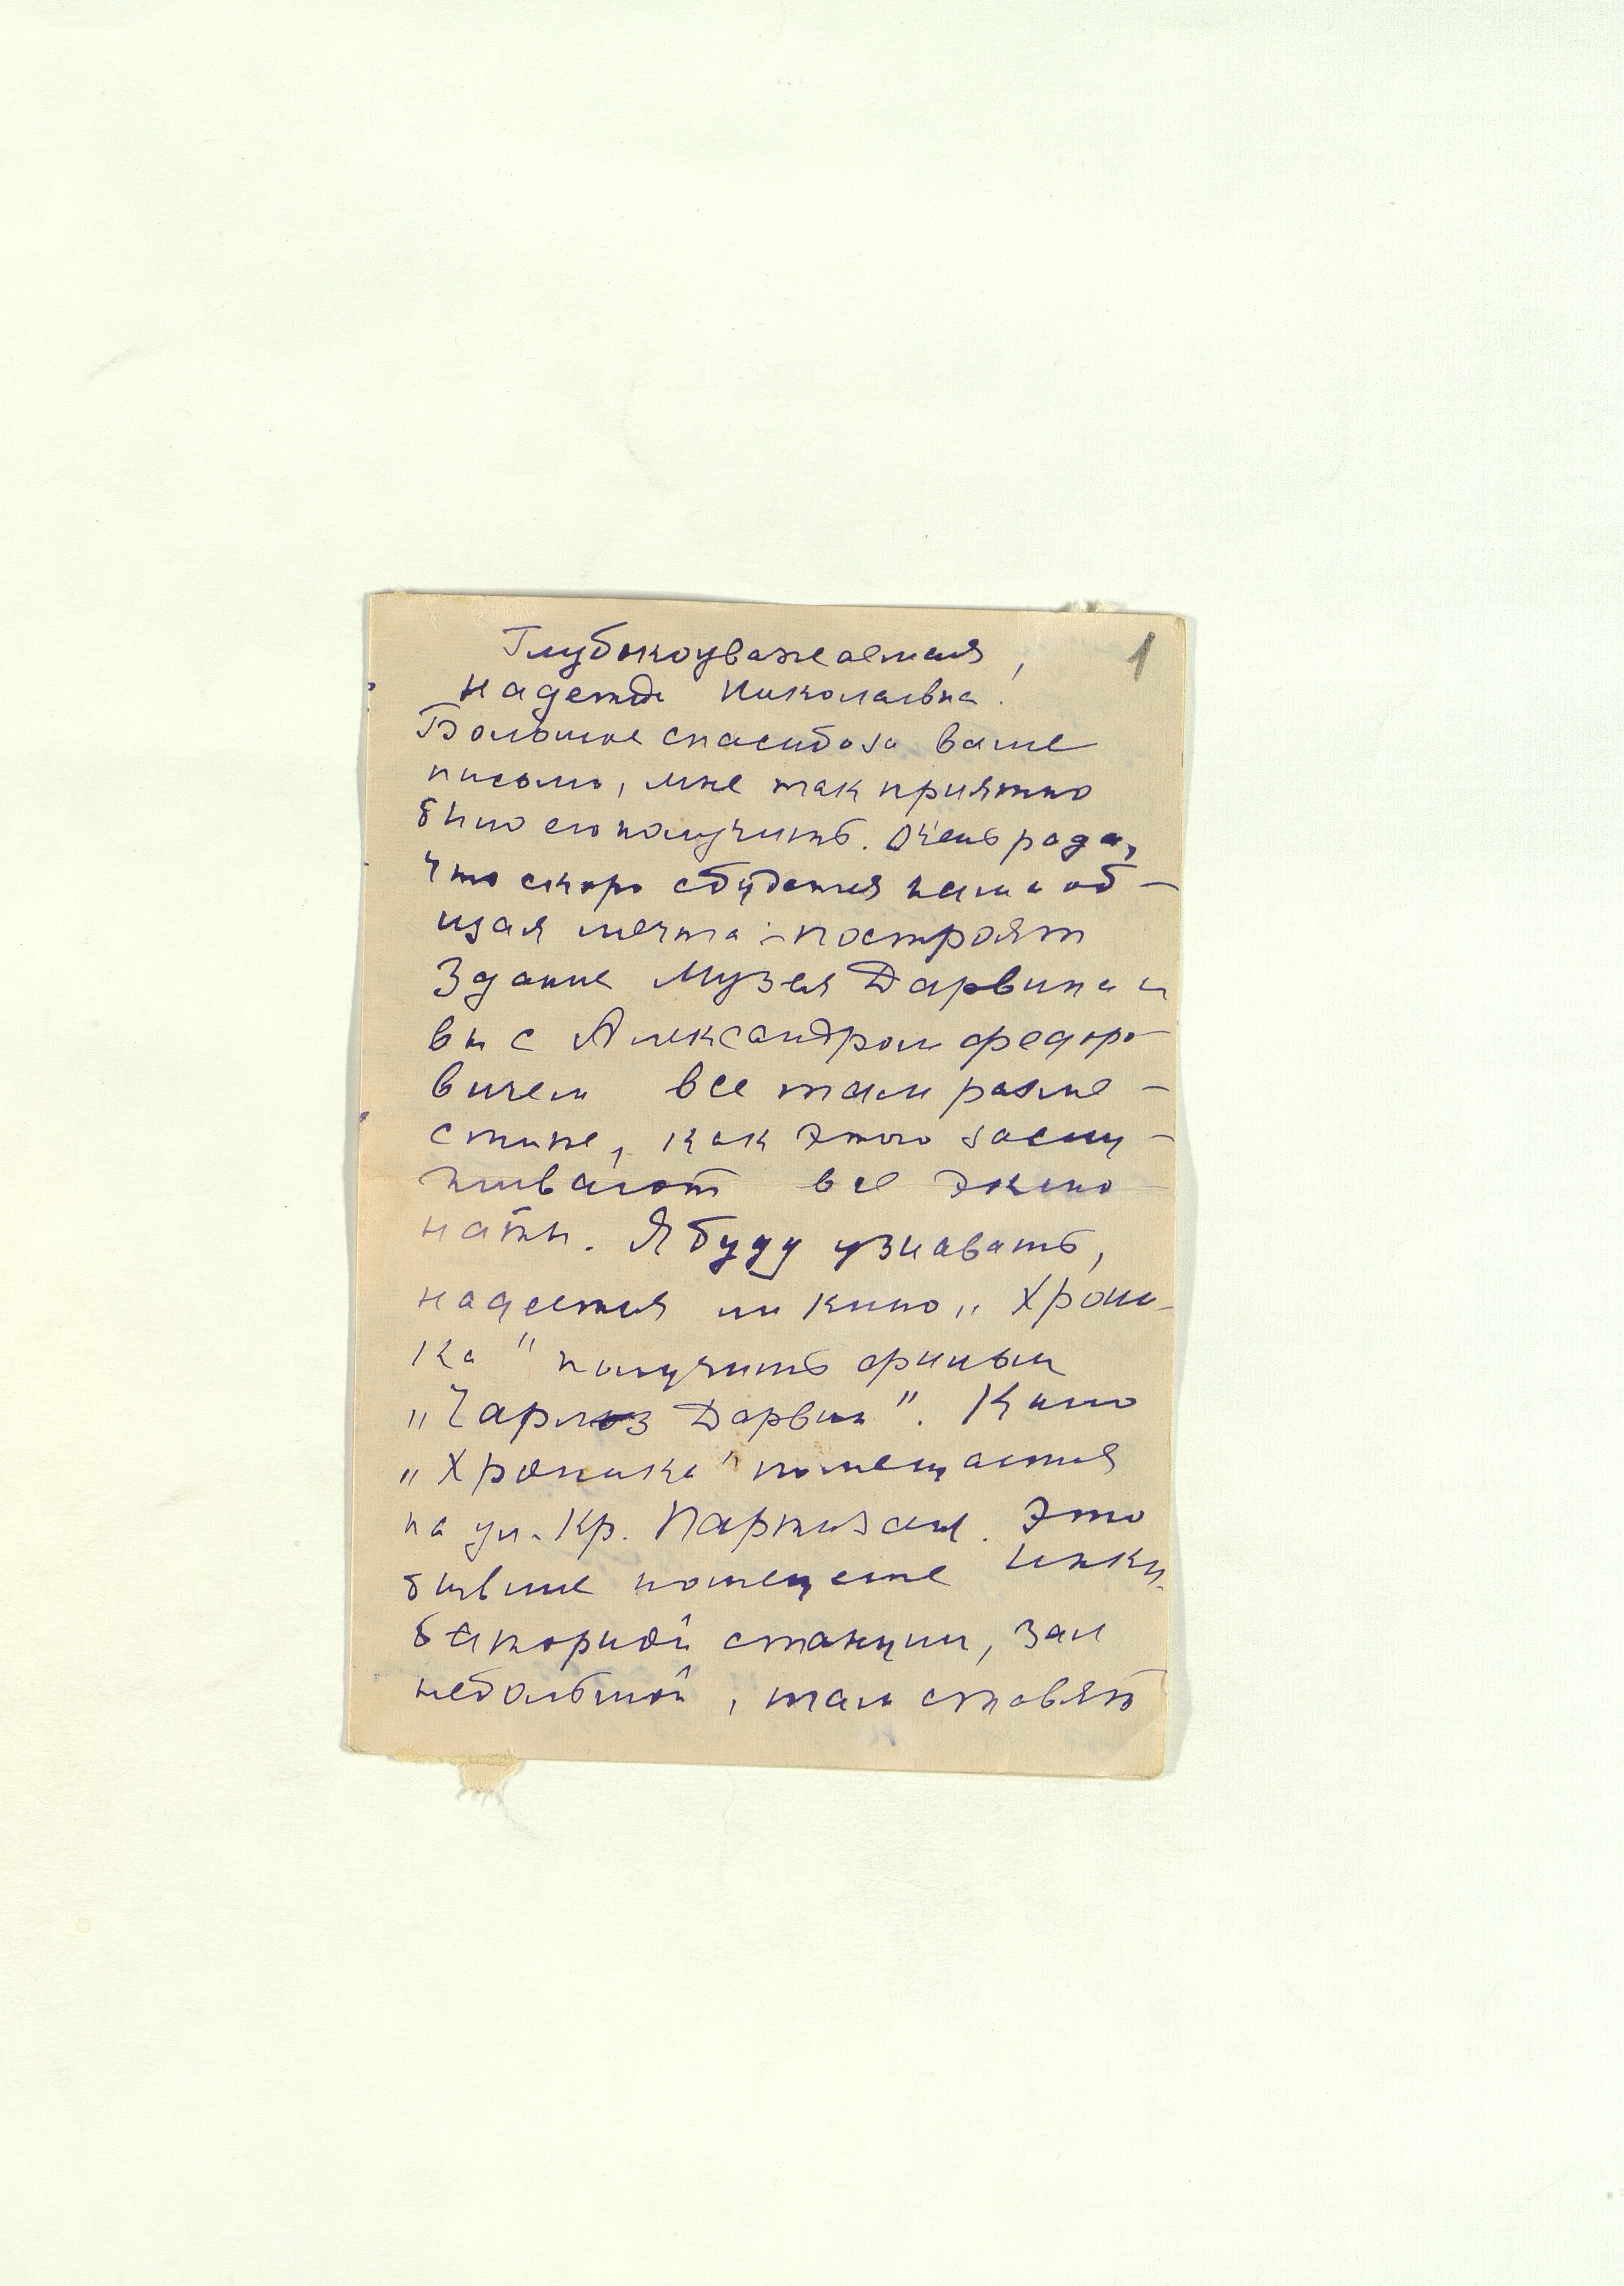 Глубокоуважаемая, 1
Надежда Николаевна!
Большое спасибо за ваше
письмо, мне так приятно
было его получить. Очень рада,
что скоро сбудется наша об-
щая мечта :- построят
здание Музея Дарвина и
вы с Александром Федоро-
вичем все там разме-
стите, как этого заслу-
живают все экспо-
наты. Я буду узнавать,
надеется ли кино „Хрони-
ка" получить фильм
„Чарльз Дарвин". Кино
„Хроника" помещается
на ул. Кр. Партизан. Это
бывшее помещение инку-
баторной станции, зал
небольшой, там ставят